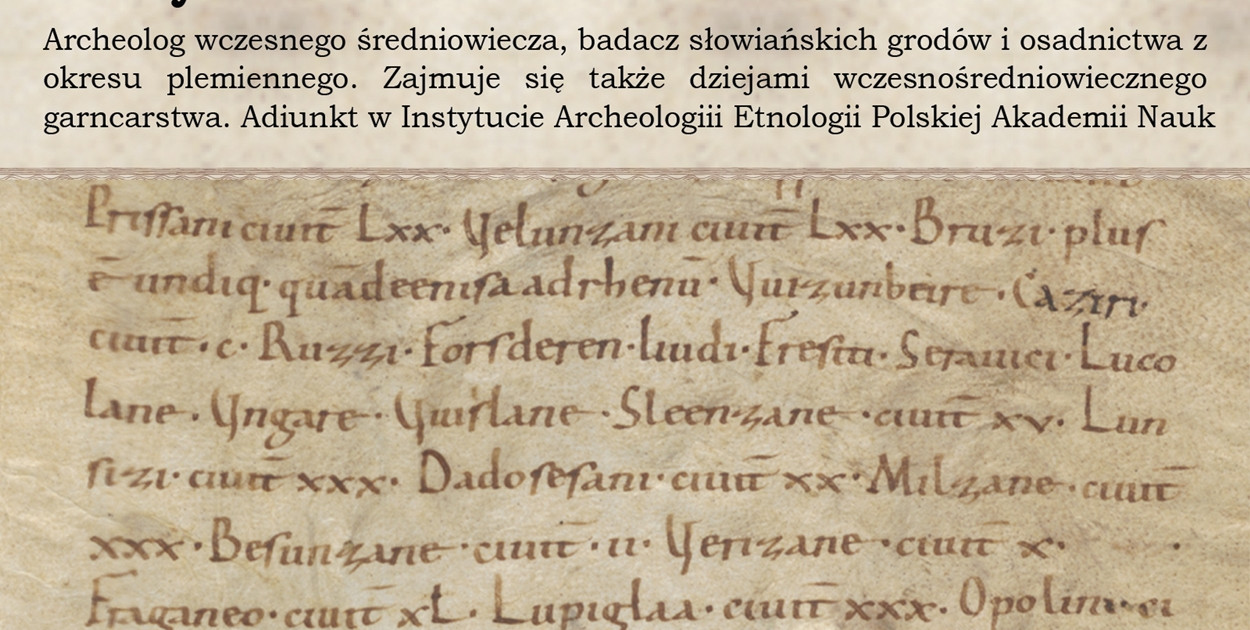 Archeolog wczesnego średniowiecza, badacz słowiańskich grodów i osadnictwa z
okresu plemiennego. Zajmuje się także dziejami wczesnośredniowiecznego
garncarstwa. Adiunkt w Instytucie Archeologiii Etnologii Polskiej Akademii Nauk
Prissani ciuit̄ Lxx· Velunzani ciuit̄ Lxx· Bruzi· plus
ē undiq· quā deenisa adrhenū· Vuizunbeire· Caziri·
ciuit̄ · c· Ruzzi· Forsderen· liudi· Fresiti· Serauici· Luco
lane · Vngare · Vuislane · Sleenzane · ciuit̄ xv· Lun
sizi· ciuit̄ xxx· Dadosesani· ciuit̄ xx· Milzane· ciuit̄
xxx · Besunzane · ciuit̄ · ii· Verizane · ciuit̄ x·
Fraganeo· ciuit̄ xL · Lupiglaa· ciuit̄ xxx· Opolini· ci